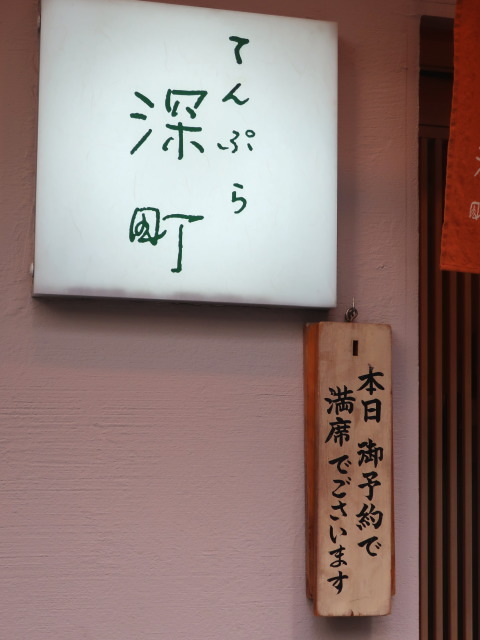 てんぷら
深町
本日 御予約で
満席でございます